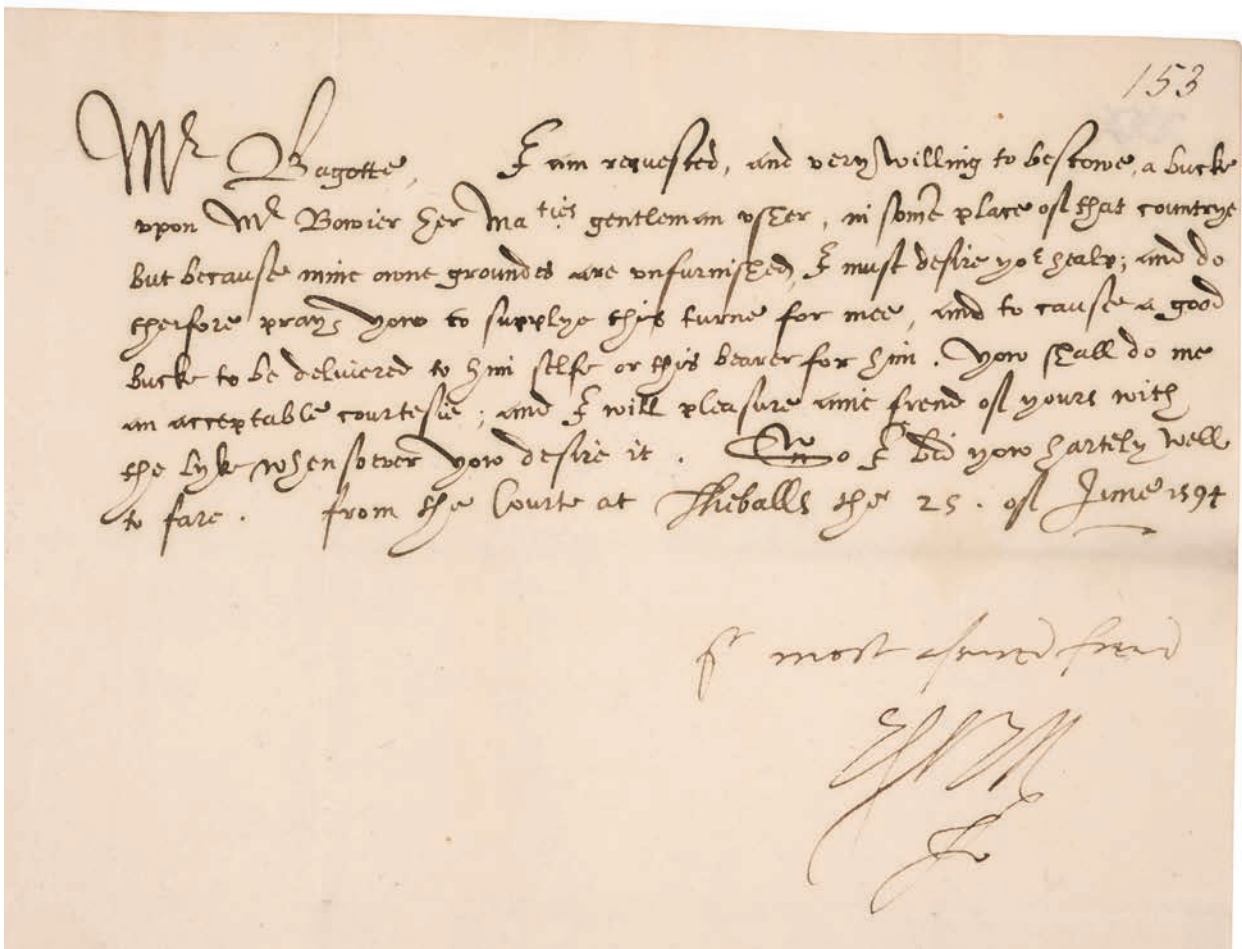 153
Mr Bagotte, I am requested, and very willing to bestowe, a bucke
vpon Mr Bowier her Maties gentleman vsher, in some place of that countrye
but because mine owne groundes are vnfurnished, I must desire yor healp; and do
therfore pray yow to supplye this turne for mee, and to cause a good
bucke to be deliuered to him selfe or this bearer for him. Yow shall do me
an acceptable courtesie; and I will pleasure anie frend of yours with
the lyke whensoever yow desire it. So I bid yow hartely well
to fare. from the Courte at Thiballs the 25. of June 1594
yr most assured frend